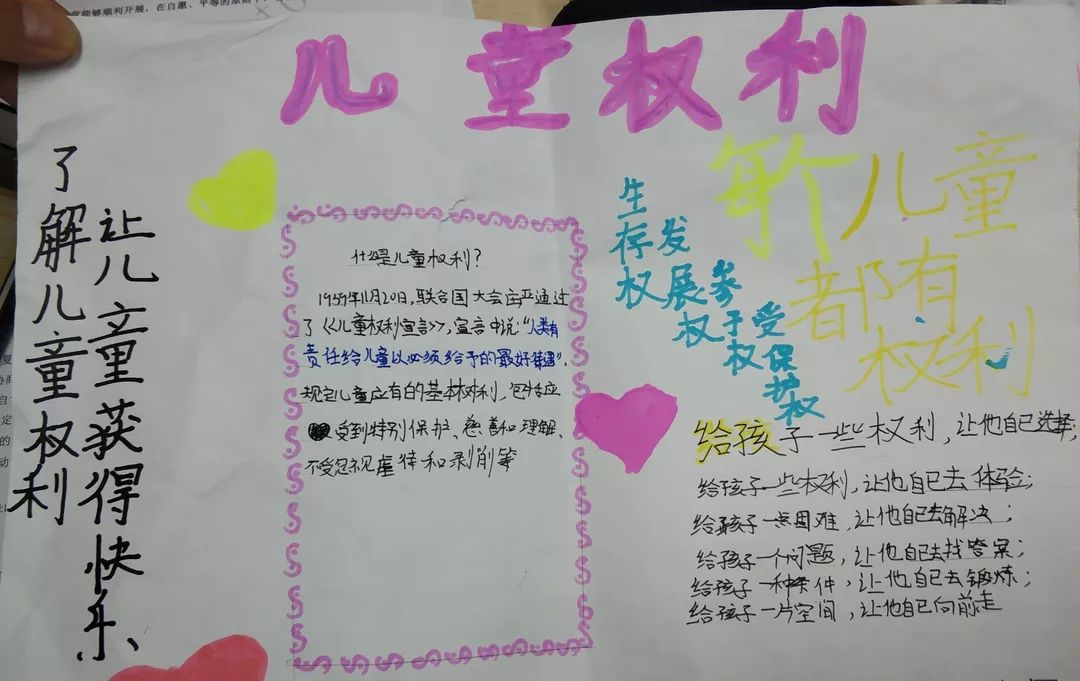 营能够顺利开展,在自愿、平等的原则
儿童权利
了解儿童权利
让儿童获得快乐、
什么是儿童权利?
1959年11月20日,联合国大会庄严通过
了《儿童权利宣言》,宣言中说:“人类有
责任给儿童以必须给予的最好待遇”,
规定儿童应有的基本权利,包括应
受到特别保护、慈善和理解、
不受忽视虐待和剥削等
生存权
发展权
参于权
受保护权
每个儿童
都有
权利
给孩子一些权利,让他自己选择;
给孩子一些权利,让他自己去体验;
给孩子一点困难,让他自己去解决;
给孩子一个问题,让他自己去找答案;
给孩子一种条件,让他自己去锻炼;
给孩子一片空间,让他自己向前走